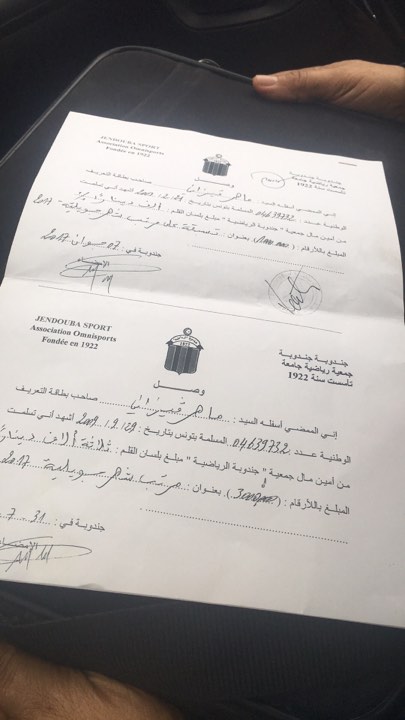 JENDOUBA SPORT
Association Omnisports
Fondée en 1922
جندوبة
تأسست سنة 1922
وصل
إني الممضي أسفله السيد : ماهر صاحب بطاقة التعريف
الوطنية عدد 04639732 المسلمة بتونس بتاريخ أشهد أني تسلمت
من أمين مال جمعية " جندوبة الرياضية " مبلغ بلسان القلم : ألف دينار
المبلغ بالأرقام : بعنوان : تسبقة على مرتب شهر جويلية 2017
جندوبة في : 07 جوان 2017
الإمضاء
JENDOUBA SPORT
Association Omnisports
Fondée en 1922
جندوبة
جمعية رياضية جامعة
تأسست سنة 1922
وصل
إني الممضي أسفله السيد : ماهر صاحب بطاقة التعريف
الوطنية عدد 04639732 المسلمة بتونس بتاريخ : أشهد أني تسلمت
من أمين مال جمعية " جندوبة الرياضية " مبلغ بلسان القلم : ثلاثة ألاف دينار
المبلغ باللأرقام : بعنوان : مرتب شهر جويلية 2017
جندوبة في : 31 . 7
الإمضاء